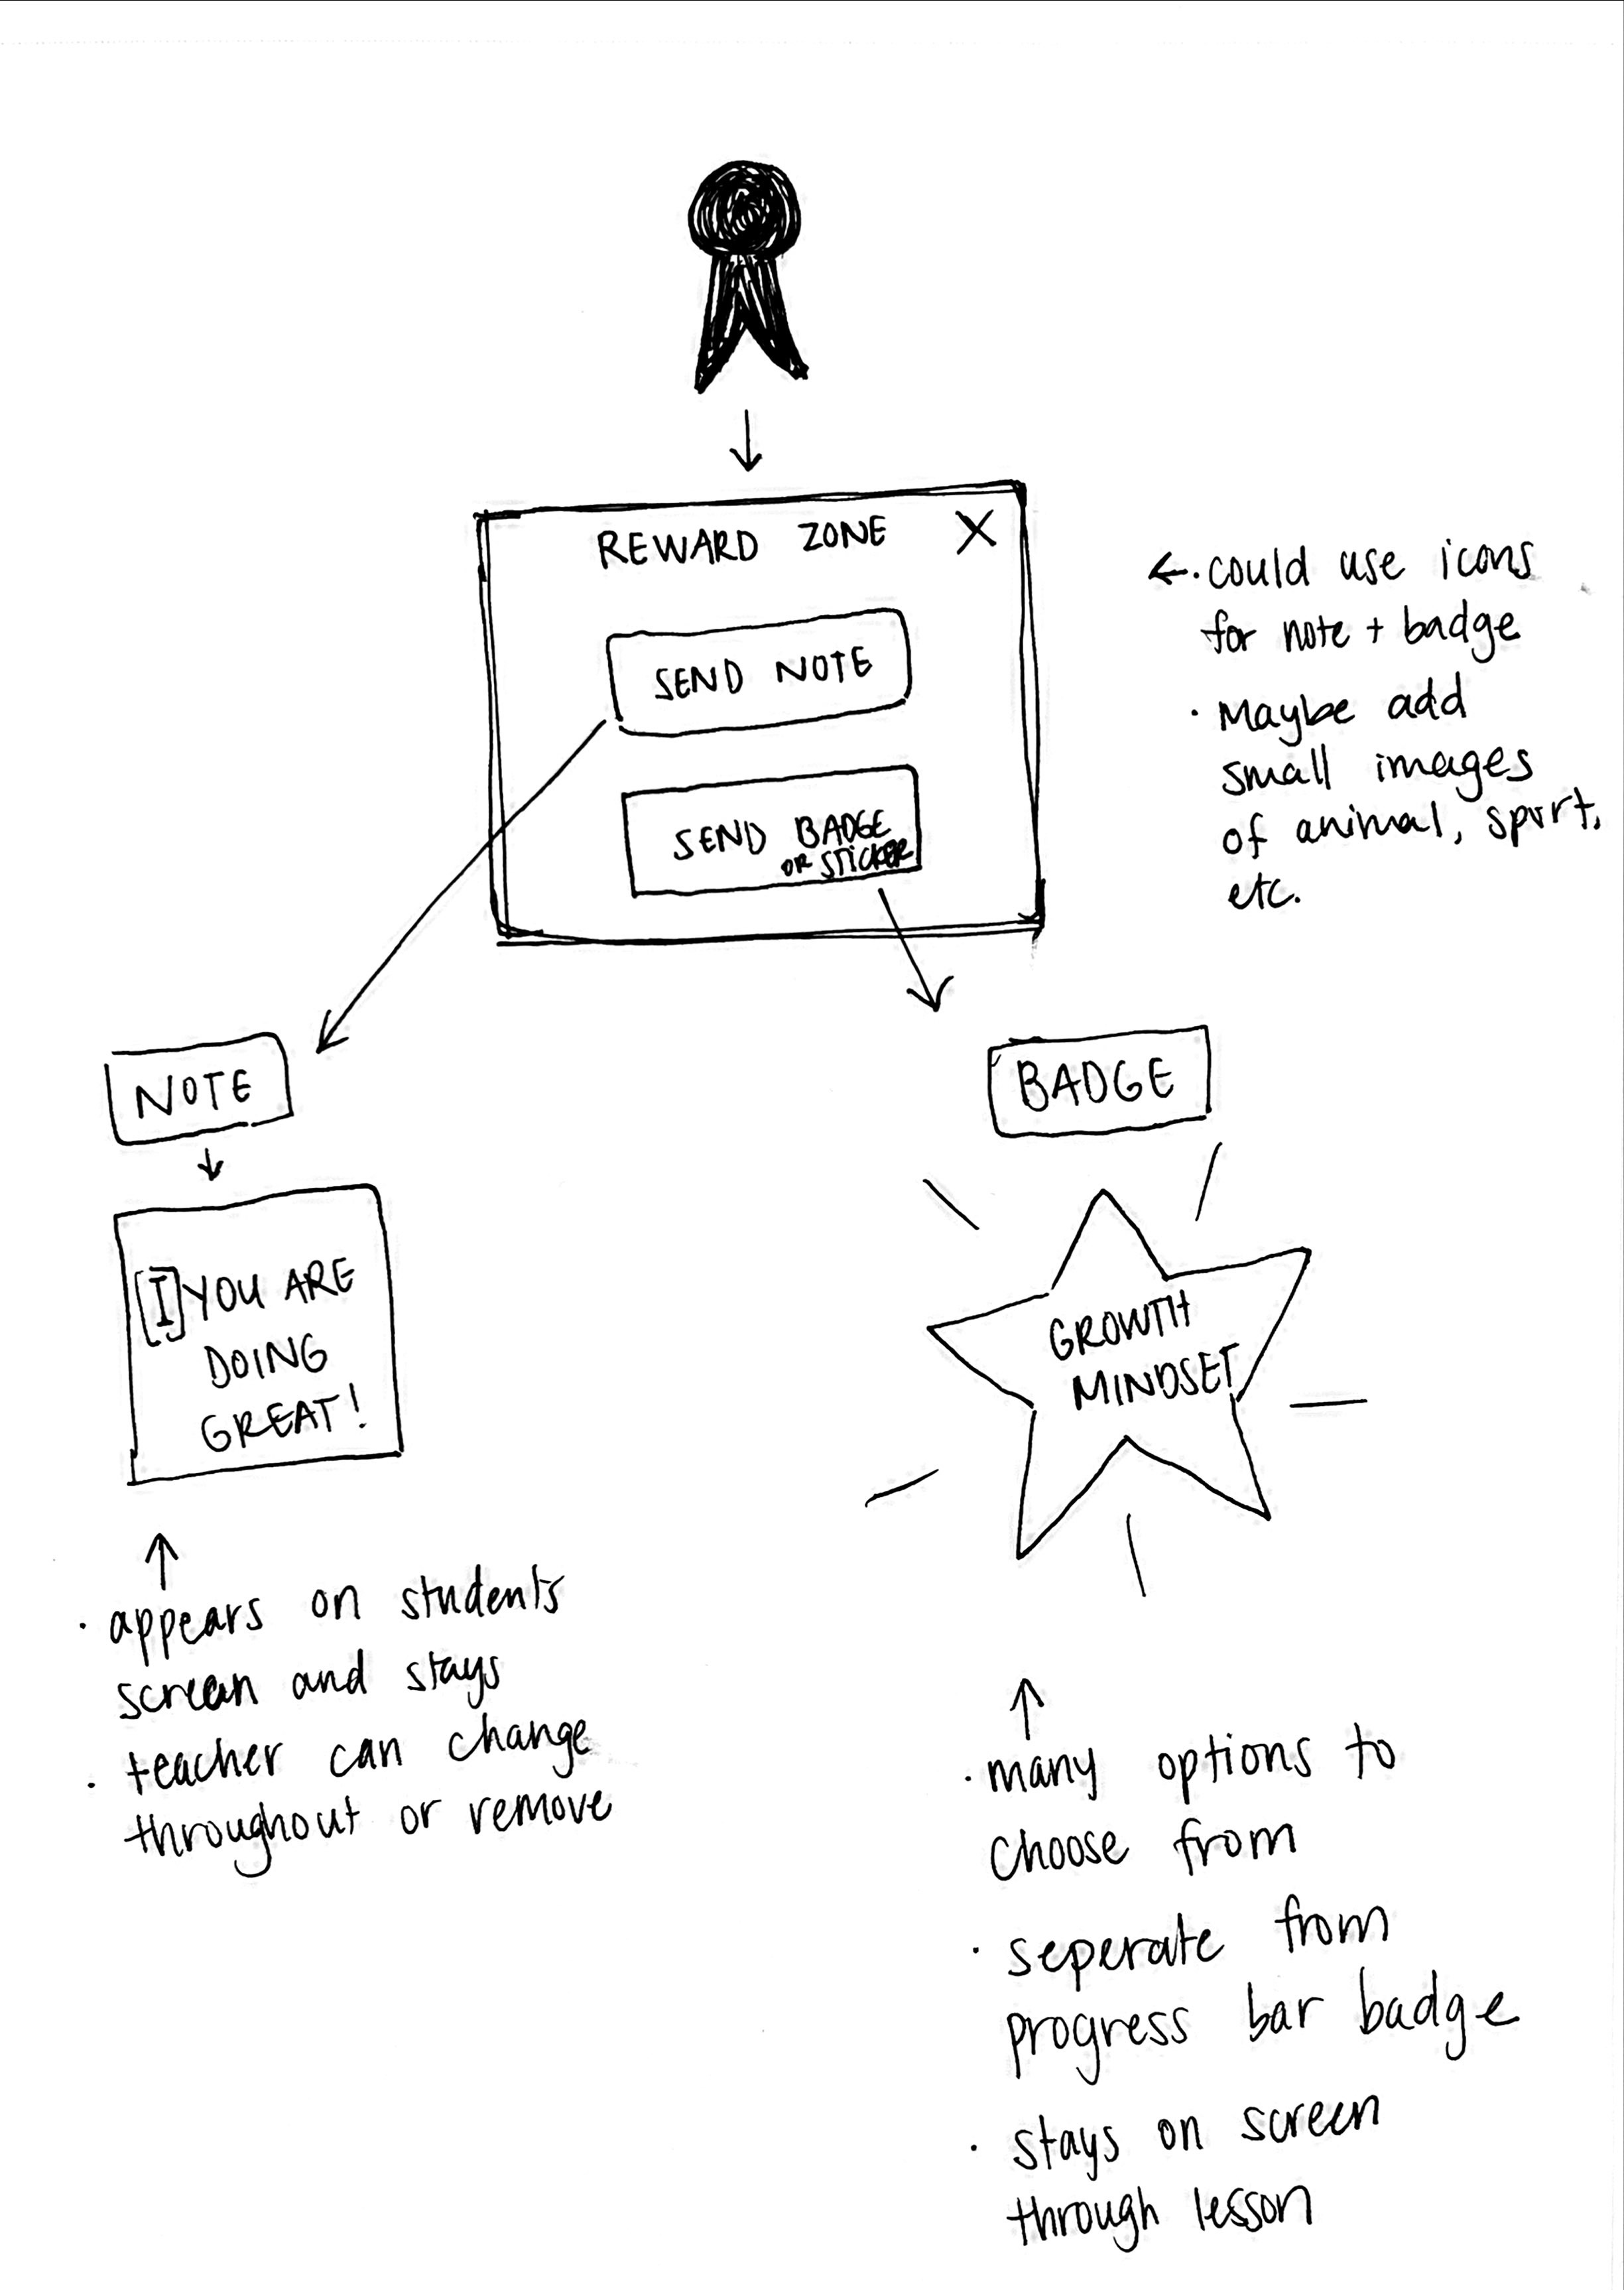 REWARD ZONE X
SEND NOTE
SEND BADGE
OR STICKER
←. could use icons
for note + badge
· Maybe add
small images
of animal, sport,
etc.
NOTE
[I] YOU ARE
DOING
GREAT!
· appears on students
screen and stays
· teacher can change
throughout or remove
BADGE
GROWTH
MINDSET
· many options to
choose from
· seperate from
progress bar badge
· stays on screen
through lesson